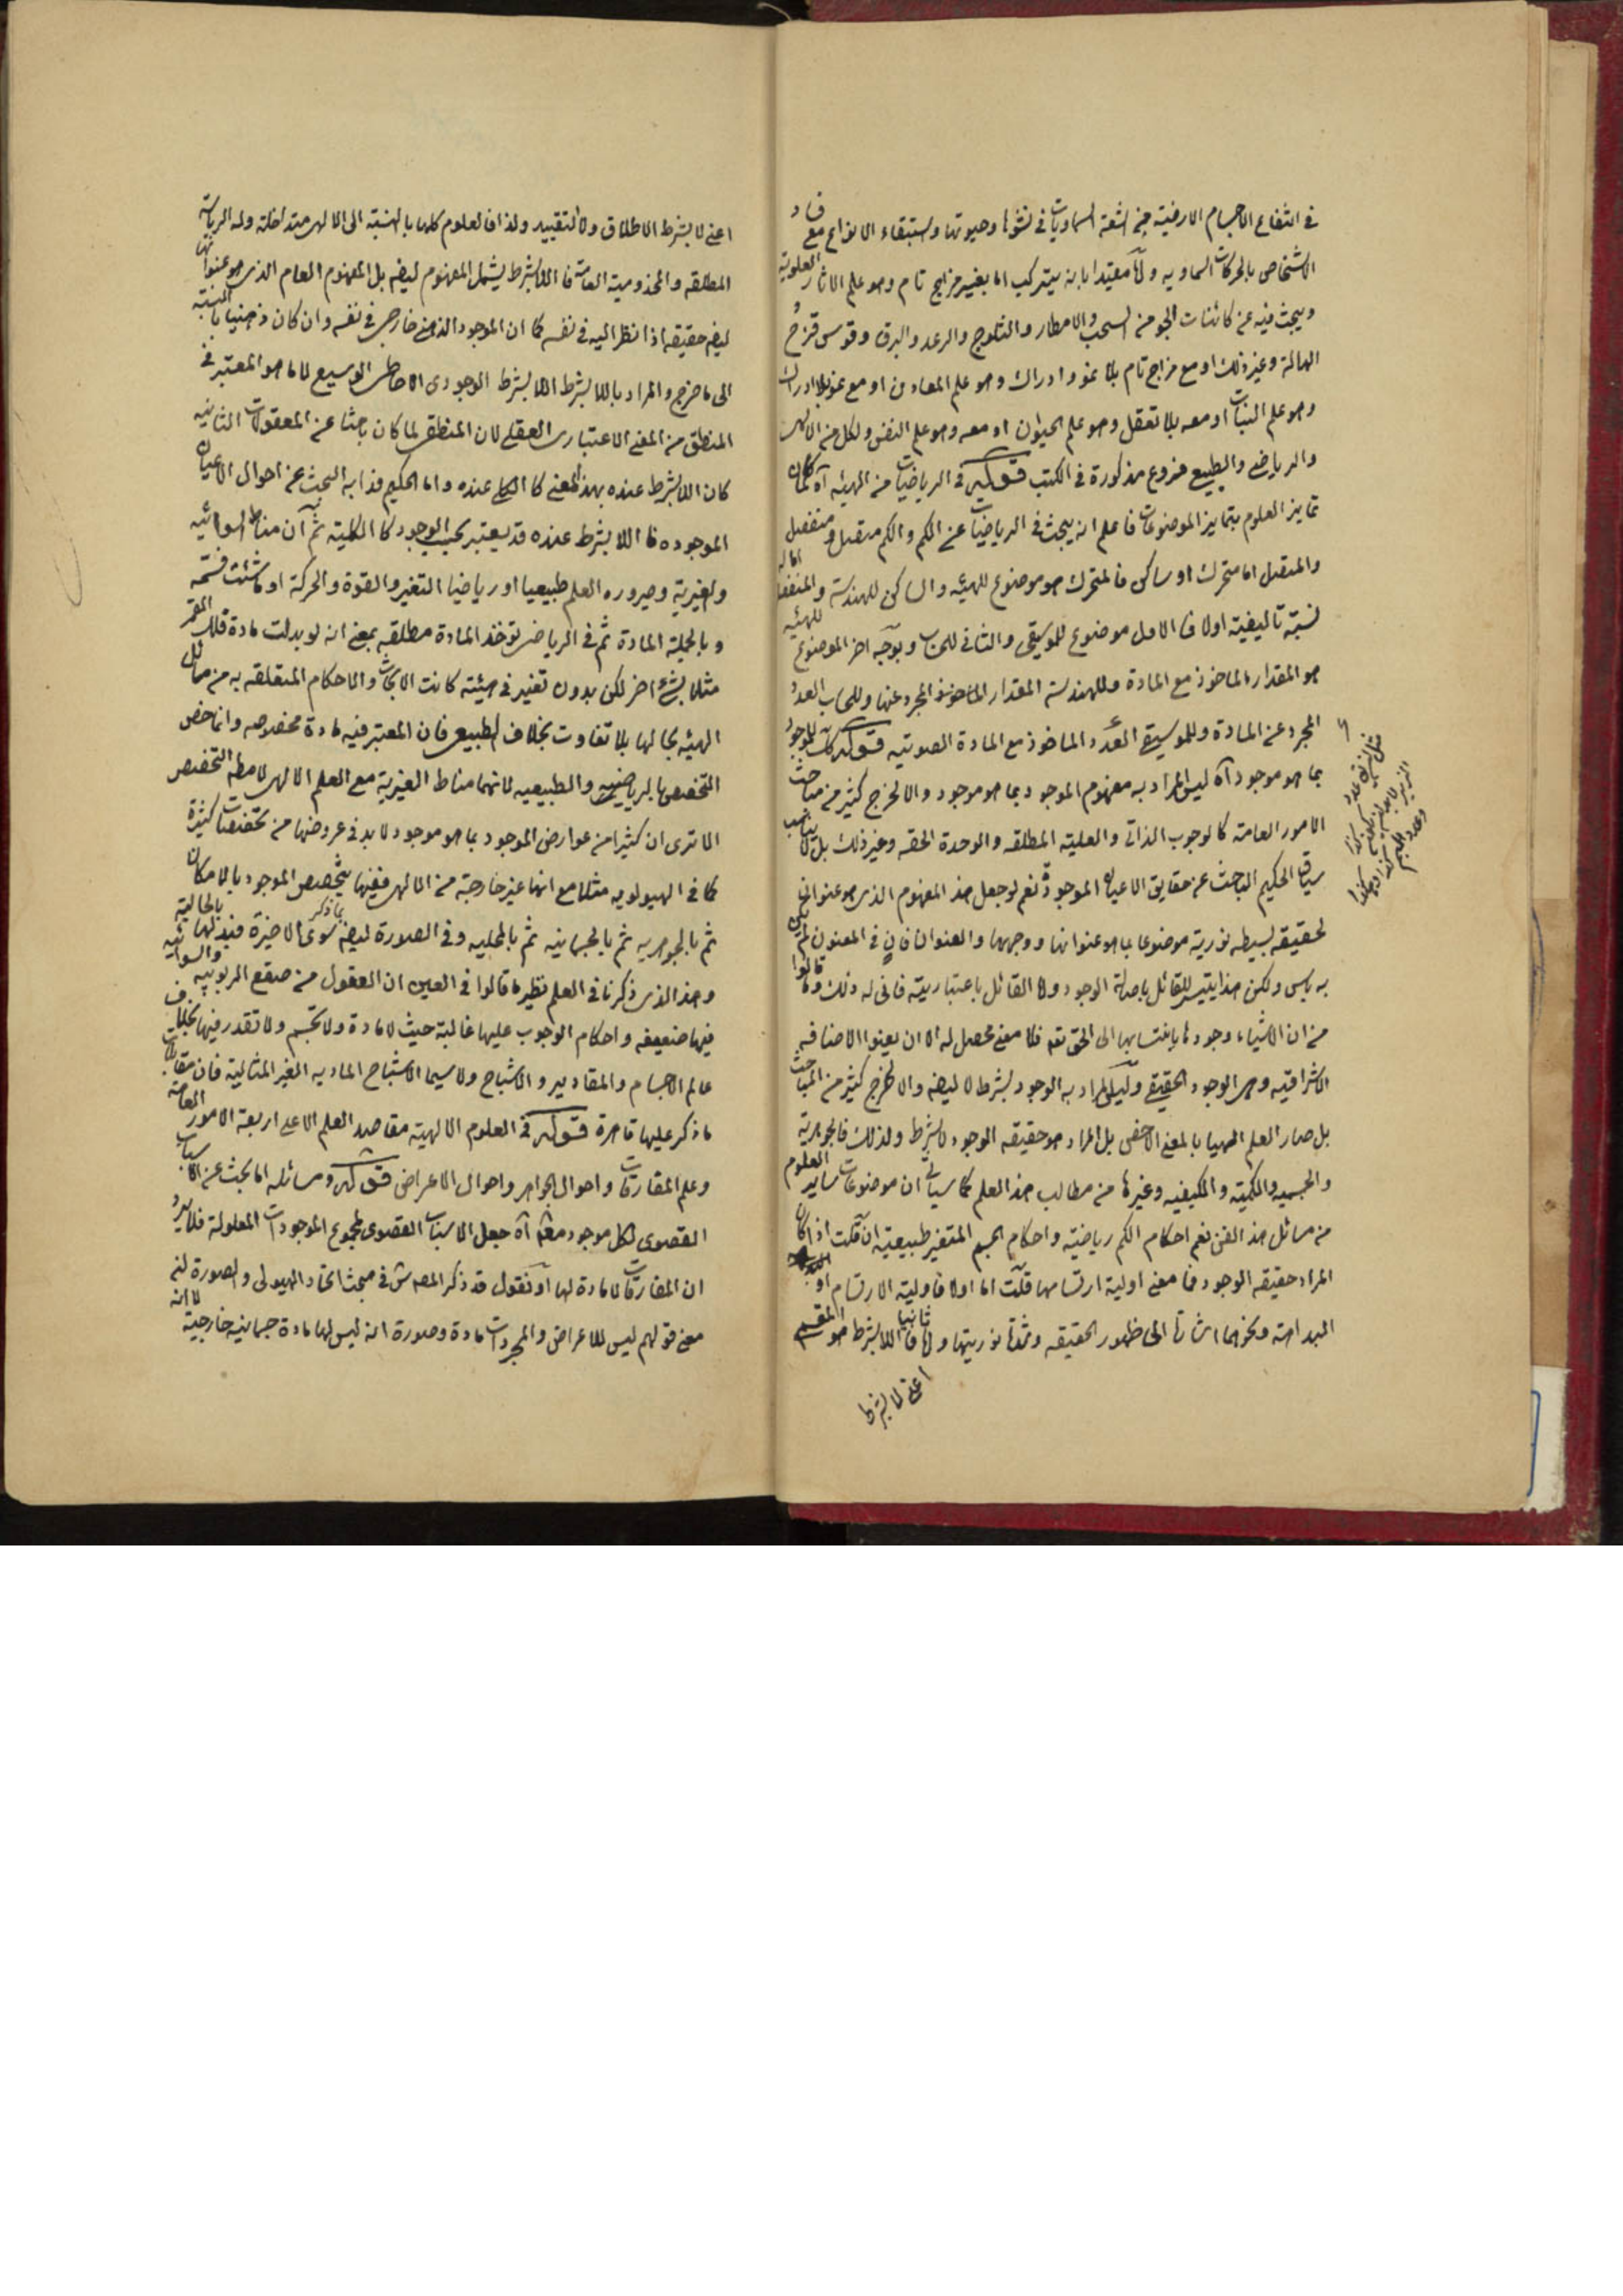 في انتفاع الاجسام الارضية من اشعة السماويات في نشوها وحيوتها واستبقاء الانواع مع فساد
الاشخاص بالحركات السماويه واما مقيدا بانه يتركب اما بغير مزاج تام وهو علم الاثار العلوية
ويبحث فيه عن كائنات الجو من السحب والامطار والثلوج والرعد والبرق وقوس قزح
الهالة وغير ذلك او مع مزاج تام بلا نمو وادراك وهو علم المعادن او مع نمو بلا ادراك
وهو علم النبات او معه بلا تعقل وهو علم الحيوان او معه وهو علم النفس ولكل من الالهي
والرياضي والطبيعي فروع مذكورة في الكتب قوله في الرياضيات من الهيئه آه لما كان
تمايز العلوم بتمايز الموضوعات فاعلم انه يبحث في الرياضيات عن الكم والكم متصل و منفصل
والمتصل اما متحرك او ساكن فالمتحرك هو موضوع للهيئه والساكن للهندسة والمنفصل اما له
نسبة تاليفية اولا فالاول موضوع للموسيقى والثاني للحساب وبوجه اخر الموضوع للهيئه
هو المقدار الماخوذ مع المادة وللهندسة المقدار الماخوذ المجرد عنها وللحساب العدد
المجرد عن المادة وللموسيقى العدد الماخوذ مع المادة الصوتيه قوله للموجود
بما هو موجود آه ليس المراد به مفهوم الموجود بما هو موجود والا لخرج كثير من مباحث
الامور العامة كالوجوب الذاتي والعلية المطلقه والوحدة الحقه وغير ذلك بل لا يناسب
سياق الحكيم الباحث عن حقايق الاعيان الموجودة نعم لو جعل هذا المفهوم الذي هو عنوان
لحقيقه بسيطه نورية موضوعا بما هو عنوانها ووجهها والعنوان فان في المعنون لم يكن
به باس ولكن هذا يتيسر للقائل باصالة الوجود ولا القائل باعتباريته فاني له ذلك وما قالوا
من ان الاشياء وجودها بانتسابها الى الحق تعه فلا معنى محصل له الا ان يعنوا الاضافه
الاشراقيه وهي الوجود الحقيقي وليس المراد به الوجود بشرط لا ايضه والا لخرج كثير من المباحث
بل صار العلم الهيا بالمعنى الاخص بل المراد هو حقيقه الوجود لا بشرط ولذلك فالجوهرية
والجسميه والكميه والكيفيه وغيرها من مطالب هذا العلم كما سياتي ان موضوعات ساير العلوم
من مسائل هذا الفن نعم احكام الكم رياضية واحكام الجسم المتغير طبيعية ان قلت اذا كان
المراد حقيقه الوجود فما معنى اولية ارتسامها قلت اما اولا فاولية الارتسام او
البداهة ونحوهما اشارة الى ظهور الحقيقه وشدة نوريتها واما ثانيا فاللا بشرط هو المقسم
اعنى لا بشرط
اعني لا بشرط الاطلاق ولا التقييد ولذا فالعلوم كلها بالنسبة الى الالهي متداخلة وله الرياسة
المطلقه والمخدومية العامة فاللابشرط يشمل المفهوم ايضه بل المفهوم العام الذي هو عنوانها
ايضه حقيقه اذا نظر اليه في نفسه كما ان الموجود الذهني خارجي في نفسه وان كان ذهنيا بالنسبة
الى ما خرج والمراد باللابشرط اللابشرط الوجودي الاحاطي الوسيع لا ما هو المعتبر في
المنطق من المعنى الاعتباري العقلي لان المنطقي لما كان باحثا عن المعقولات الثانيه
كان اللابشرط عنده بهذا المعنى كالكلي عنده واما الحكيم فدابه البحث عن احوال الاعيان
الموجوده فاللابشرط عنده قد يعتبر بحسب الوجود كالكلية ثم ان مناط السوائيه
والغيرية وصيروره العلم طبيعيا او رياضيا التغير والقوة والحركة او ما شئت فسمه
وبالجملة المادة ثم في الرياضي توخذ المادة مطلقه بمعنى انه لو بدلت مادة فلك القمر
مثلا بشيء اخر لكن بدون تغير في هيئته كانت الابحاث والاحكام المتعلقه به من مسائل
الهيئه بحالها بلا تفاوت بخلاف الطبيعي فان المعتبر فيه مادة مخصوصه وانما خص
التخصص بالرياضيه والطبيعيه لانهما مناط الغيرية مع العلم الالهي لا مطلق التخصص
الا ترى ان كثيرا من عوارض الموجود بما هو موجود لا بد في عروضها من تخصصات كثيرة
كما في الهيولويه مثلا مع انها غير خارجة من الالهي ففيها يتخصص الموجود بالامكان
ثم بالجوهريه ثم بالجسمانيه ثم بالمحليه وفي الصورة ايضه بما ذكر سوى الاخيرة فبدلها بالحالية
وهذا الذي ذكرنا في العلم نظير ما قالوا في العين ان العقول من صقع الربوبيه والسوائيه
فيها ضعيفه واحكام الوجوب عليها غالبة حيث لا مادة ولا تجسم ولا تقدر فيها بخلاف
عالم الاجسام والمقادير والاشباح ولا سيما الاشباح الماديه الغير المثالية فان
ما ذكر عليها قاهرة قوله في العلوم الالهية مقاصد العلم الاعلى اربعة الامور العامة
وعلم المفارقات واحوال الجواهر واحوال الاعراض قوله ومسائله اما بحث عن الاسباب
القصوى لكل موجود معلول آه جعل الاسباب القصوى لمجموع الموجودات المعلولة فلا يرد
ان المفارقات لا مادة لها او نقول قد ذكر المص في مبحث اتحاد الهيولى والصورة ان
معنى قولهم ليس للاعراض والمجردات مادة وصورة انه ليس لها مادة جسمانيه خارجية لا انه